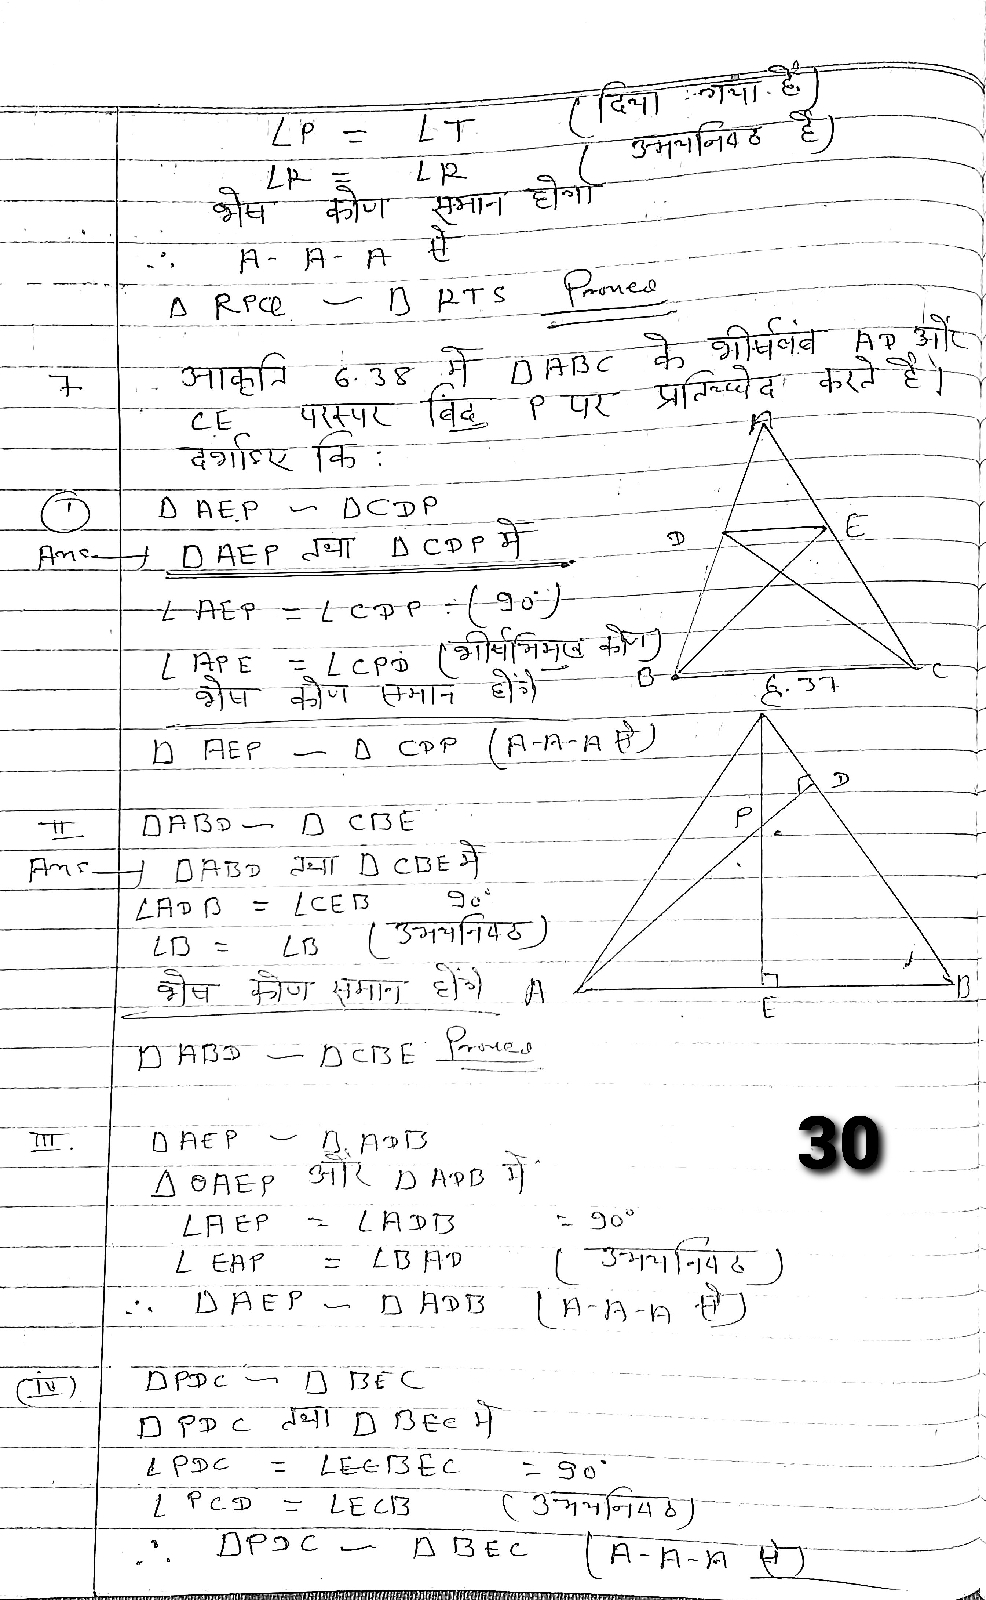 ∠P = ∠T (दिया गया है)
∠R = ∠R (उभयनिष्ठ है)
शेष कोण समान होगा
∴ A-A-A से
Δ RPQ ~ Δ RTS Proved
7 आकृति 6.38 में ΔABC के शीर्षलंब AD और
CE परस्पर बिंदु P पर प्रतिच्छेद करते है।
दर्शाइए कि :
A
(i) Δ AEP ~ ΔCDP
D E
Ans → Δ AEP तथा Δ CDP में
∠AEP = ∠CDP = (90°)
∠APE = ∠CPD (शीर्षाभिमुख कोण)
B C
शेष कोण समान होंगे
6.37
Δ AEP ~ Δ CDP (A-A-A से)
D
P
II ΔABD ~ Δ CBE
Ans → ΔABD तथा Δ CBE में
∠ADB = ∠CEB 90°
∠B = ∠B (उभयनिष्ठ)
शेष कोण समान होंगे
A B
E
Δ ABD ~ ΔCBE Proved
III. ΔAEP ~ Δ ADB
30
Δ AEP और Δ ADB में
∠AEP = ∠ADB = 90°
∠EAP = ∠BAD (उभयनिष्ठ)
∴ ΔAEP ~ Δ ADB (A-A-A से)
(iv) ΔPDC ~ Δ BEC
Δ PDC तथा Δ BEC में
∠PDC = ∠BEC = 90°
∠PCD = ∠ECB (उभयनिष्ठ)
∴ ΔPDC ~ Δ BEC (A-A-A से)